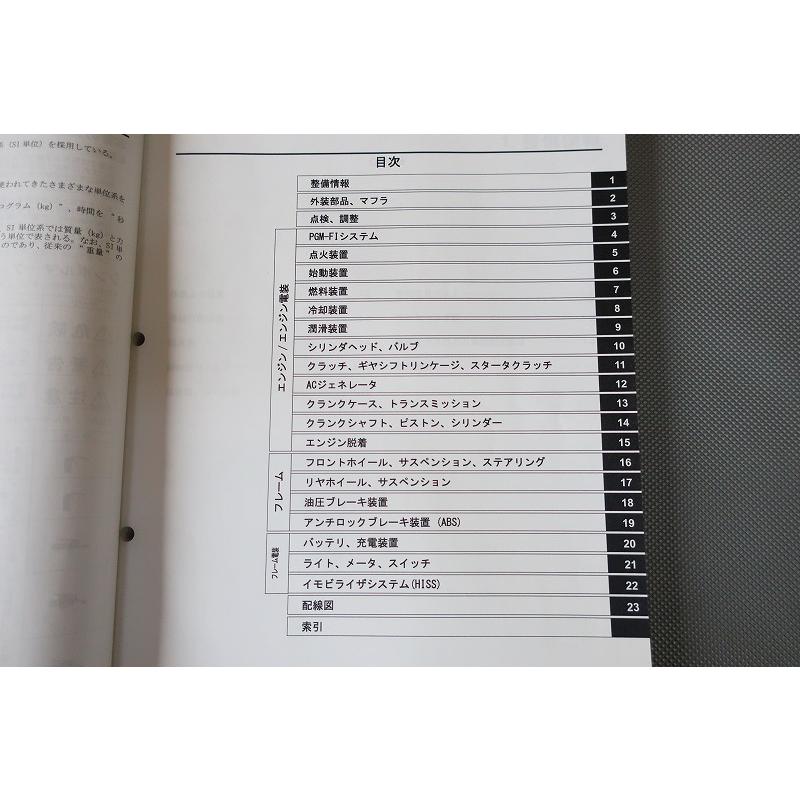 系（SI単位）を採用している。
使われてきたさまざまな単位系を
ログラム（kg）"、時間を "秒
、SI単位系では質量（kg）と力
う単位で表される。なお、SI単
のであり、従来の "重量" の
目次
整備情報 1
外装部品、マフラ 2
点検、調整 3
エンジン/エンジン電装
PGM-FIシステム 4
点火装置 5
始動装置 6
燃料装置 7
冷却装置 8
潤滑装置 9
シリンダヘッド、バルブ 10
クラッチ、ギヤシフトリンケージ、スタータクラッチ 11
ACジェネレータ 12
クランクケース、トランスミッション 13
クランクシャフト、ピストン、シリンダー 14
エンジン脱着 15
フレーム
フロントホイール、サスペンション、ステアリング 16
リヤホイール、サスペンション 17
油圧ブレーキ装置 18
アンチロックブレーキ装置（ABS） 19
フレーム電装
バッテリ、充電装置 20
ライト、メータ、スイッチ 21
イモビライザシステム(HISS) 22
配線図 23
索引